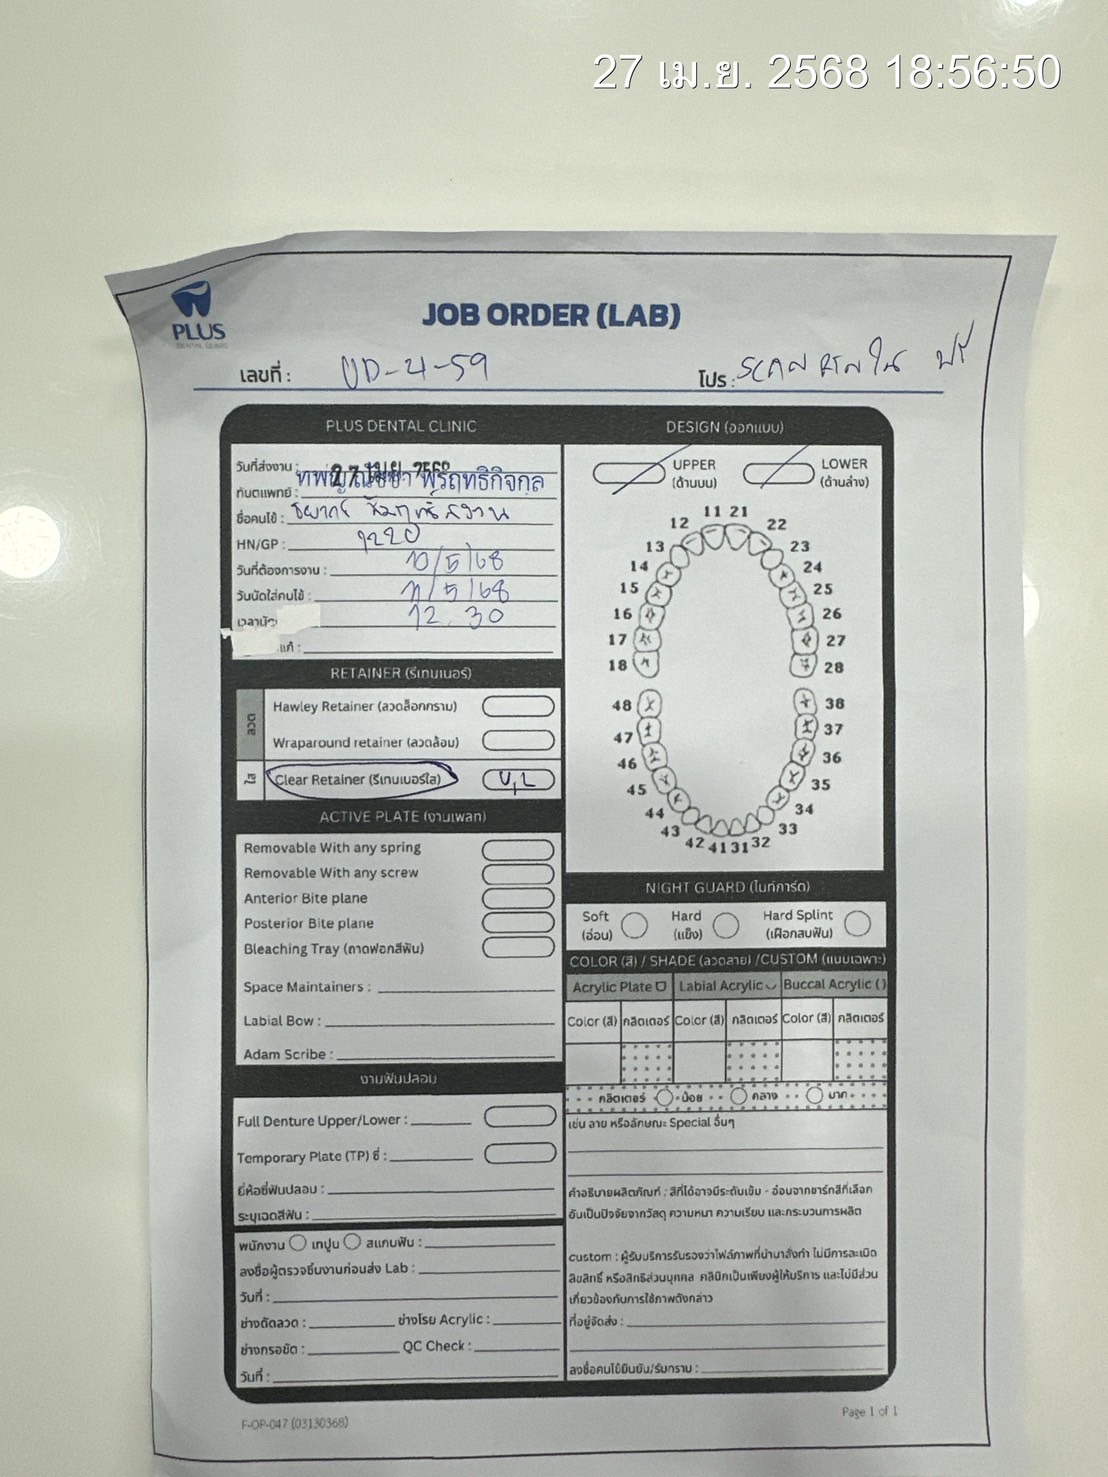 27 เม.ย. 2568 18:56:50
PLUS
DENTAL CLINIC
JOB ORDER (LAB)
เลขที่ : UD-4-59
โปร : scan ฟรี
PLUS DENTAL CLINIC
วันที่ส่งงาน : 27 เม.ย. 2568
ทันตแพทย์ :
ชื่อคนไข้ :
HN/GP : 1220
วันที่ต้องการงาน : 10/5/68
วันนัดใส่คนไข้ : 11/5/68
เวลานัด 12.30
แก้ :
RETAINER (รีเทนเนอร์)
ลวด
Hawley Retainer (ลวดล็อกกราม)
Wraparound retainer (ลวดล้อม)
ใส
Clear Retainer (รีเทนเนอร์ใส) U,L
ACTIVE PLATE (งานเพลท)
Removable With any spring
Removable With any screw
Anterior Bite plane
Posterior Bite plane
Bleaching Tray (ถาดฟอกสีฟัน)
Space Maintainers :
Labial Bow :
Adam Scribe :
งานฟันปลอม
Full Denture Upper/Lower :
Temporary Plate (TP) ซี่ :
ยี่ห้อซี่ฟันปลอม :
ระบุเฉดสีฟัน :
พนักงาน เทปูน สแกนฟัน :
ลงชื่อผู้ตรวจชิ้นงานก่อนส่ง Lab :
วันที่ :
ช่างดัดลวด : ช่างโรย Acrylic :
ช่างกรอขัด : QC Check :
วันที่ :
DESIGN (ออกแบบ)
UPPER
(ด้านบน)
LOWER
(ด้านล่าง)
11 21
12 22
13 23
14 24
15 25
16 26
17 27
18 28
48 38
47 37
46 36
45 35
44 34
43 33
42 41 31 32
NIGHT GUARD (ไนท์การ์ด)
Soft
(อ่อน)
Hard
(แข็ง)
Hard Splint
(เฝือกสบฟัน)
COLOR (สี) / SHADE (ลวดลาย) /CUSTOM (แบบเฉพาะ)
Acrylic Plate Labial Acrylic Buccal Acrylic ( )
Color (สี) กลิตเตอร์ Color (สี) กลิตเตอร์ Color (สี) กลิตเตอร์
กลิตเตอร์ น้อย กลาง มาก
เช่น ลาย หรือลักษณะ Special อื่นๆ
คำอธิบายผลิตภัณฑ์ : สีที่ได้อาจมีระดับเข้ม - อ่อนจากชาร์ทสีที่เลือก
อันเป็นปัจจัยจากวัสดุ ความหนา ความเรียบ และกระบวนการผลิต
custom : ผู้รับบริการรับรองว่าไฟล์ภาพที่นำมาสั่งทำ ไม่มีการละเมิด
ลิขสิทธิ์ หรือสิทธิส่วนบุคคล คลินิกเป็นเพียงผู้ให้บริการ และไม่มีส่วน
เกี่ยวข้องกับการใช้ภาพดังกล่าว
ที่อยู่จัดส่ง :
ลงชื่อคนไข้ยืนยัน/รับทราบ :
F-OP-047 (03130368)
Page 1 of 1